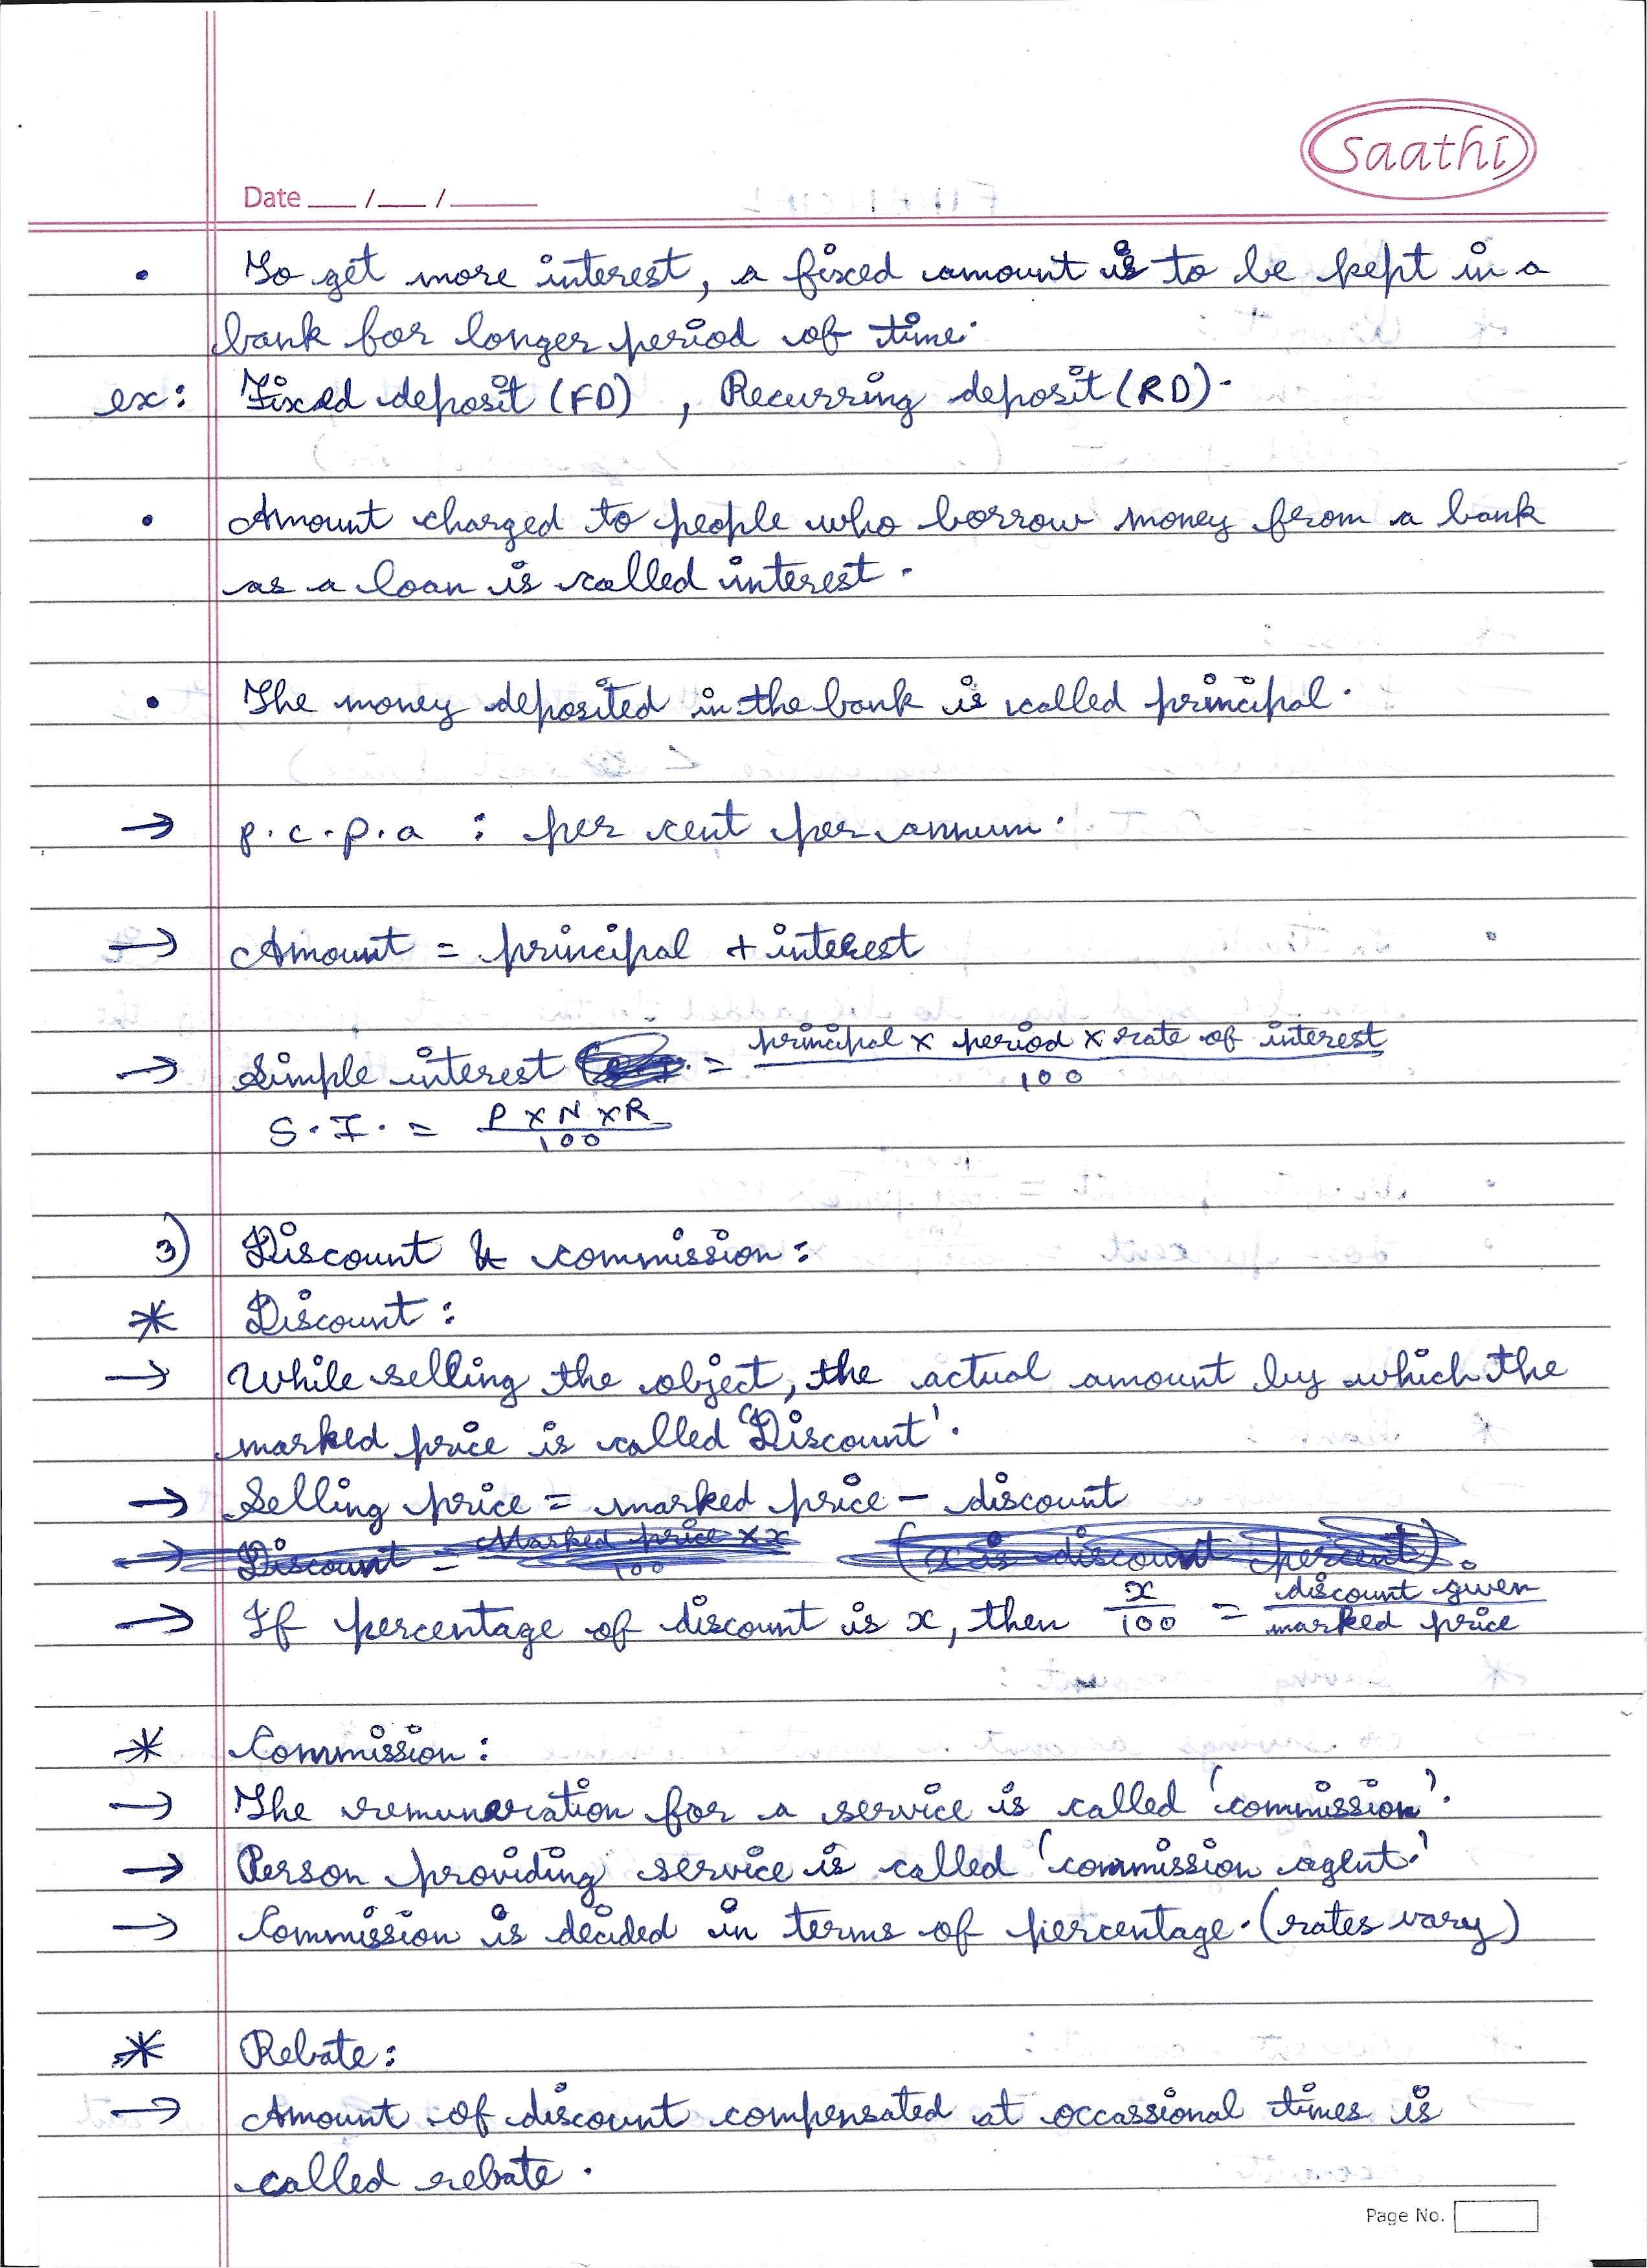 saathi
Date ___ / ___ / ______
• To get more interest, a fixed amount is to be kept in a
bank for longer period of time.
ex: Fixed deposit (FD) , Recurring deposit (RD).
• Amount charged to people who borrow money from a bank
as a loan is called interest.
• The money deposited in the bank is called principal.
→ p.c.p.a : per cent per annum.
→ Amount = principal + interest
→ Simple interest = principal × period × rate of interest / 100
S.I. = P × N × R / 100
3) Discount & commission:
* Discount:
→ While selling the object, the actual amount by which the
marked price is called 'Discount'.
→ Selling price = marked price - discount
→ Discount = Marked price × x / 100 (x is discount percent).
→ If percentage of discount is x, then x/100 = discount given / marked price
* Commission:
→ The remuneration for a service is called 'commission'.
→ Person providing service is called 'commission agent.'
→ Commission is decided in terms of percentage. (rates vary)
* Rebate:
→ Amount of discount compensated at occassional times is
called rebate.
Page No.